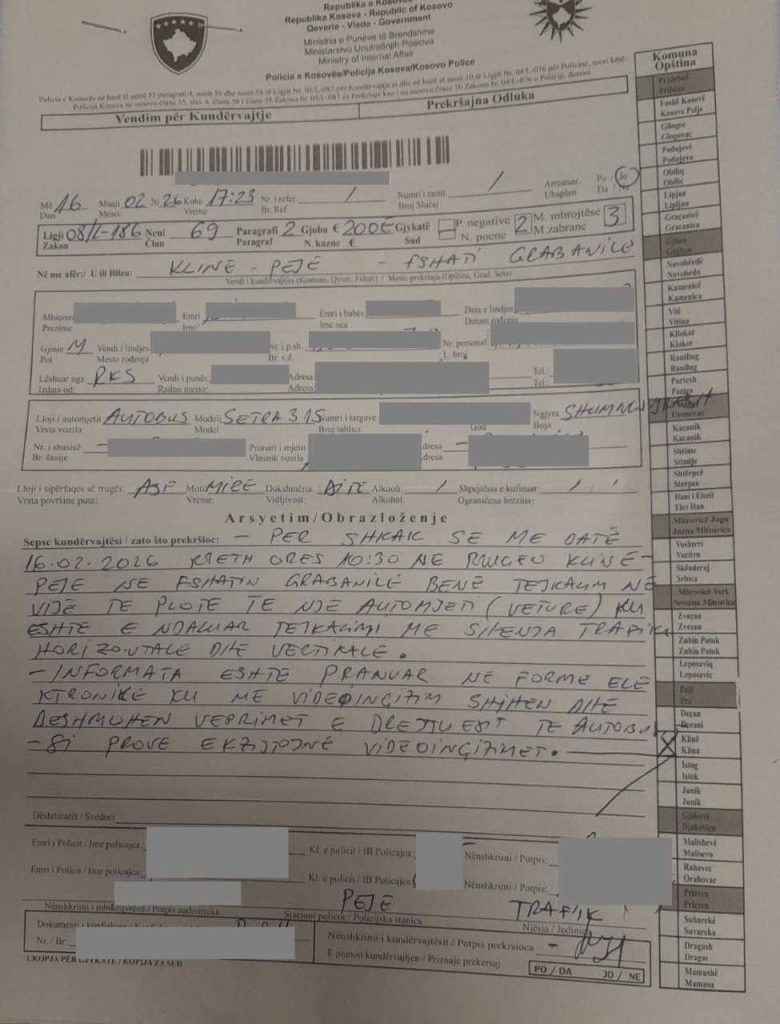 Republika e Kosovës
Republika Kosova - Republic of Kosovo
Qeveria - Vlada - Government
Ministria e Punëve të Brendshme
Ministarstvo Unutrašnjih Poslova
Ministry of Internal Affair
Policia e Kosovës/Policija Kosova/Kosovo Police
Vendim për Kundërvajtje Prekršajna Odluka
Më 16 Muaji 02 2026 Koha 17:23 Nr. i refer. / Numri i rastit / Arrestuar Po / Jo
Dan Mesec Vreme Br. Ref Broj Slučaj Uhapšen Da /
Ligji 08/L-186 Neni 69 Paragrafi 2 Gjoba € 200€ Gjykatë P. negative 2 M. mbrojtëse 3
Zakon Član Paragraf N. kazne € Sud N. poene M. zabrane
Në ose afër:/ U ili Blizu: KLINË - PEJË - FSHATI GRABANICË
Vendi i kundërvajtjes (Komuna, Qyteti, Fshati) / Mesto prekršaja (Opština, Grad, Selo)
Mbiemri Emri Emri i babës Data e lindjes
Prezime Ime Ime oca Datum rođenja
Gjinia M Vendi i lindjes Nr. i p.sh. Nr. personal
Pol Mesto rođenja Br. v.d. L. broj
Lëshuar nga: RKS Vendi i punës Adresa Tel.:
Izdata od: Radno mesto: Adresa Tel.:
Lloji i automjetit AUTOBUS Modeli SETRA 315 Numri i targave Ngjyra SHUMNGJYRËSIT
Vrsta vozila Model Broj tablice God Boja
Nr. i shasisë - Pronari i mjetit dresa -
Br. šasije Vlasnik vozila dresa
Lloji i sipërfaqes së rrugës: ASF Moti MIRË Dukshmëria: DITË Alkooli: / Shpejtësia e kufizuar /
Vrsta površine puta: Vreme: Vidljivost: Alkohol: Ograničena brzina:
Arsyetim/Obrazloženje
Sepse kundërvajtësi / zato što prekršioc: - PËR SHKAK SE ME DATË
16.02.2026 RRETH ORËS 10:30 NË RRUGËN KLINË-
PEJË NË FSHATIN GRABANICË BËNË TEJKALIM NË
VIJË TË PLOTË TË NJË AUTOMJETI (VETURË) KU
ËSHTË E NDALUAR TEJKALIMI ME SHENJA TRAFIKU
HORIZONTALE DHE VERTIKALE.
- INFORMATA ËSHTË PRANUAR NË FORMË ELE
KTRONIKE KU ME VIDEOINÇIZIM SHIHEN DHE
DËSHMOHEN VEPRIMET E DREJTUESIT TË AUTOBUS
- SI PROVË EKZISTOJNË VIDEOINÇIZIMET.
Dëshmitarit / Svedoci
Emri i Policit / Ime policajca Kl. e policit / IB Policajca Nënshkrimi / Potpis:
Emri i Policit / Ime policajca: Kl. e policit / IB Policajca Nënshkrimi / Potpis:
PEJË TRAFIK
Nënshkrimi i mbikëqyrësit / Potpis nadzornika Stacioni policor / Policijska stanica Njësia / Jedinica
Nr. / Br: Nënshkrimi i kundërvajtësit / Potpis prekrsioca -
E pranon kundërvajtjen / Priznaje prekersaj PO / DA JO / NE
1.KOPJA PËR GJYKATË / KOPIJA ZA SUD
Komuna
Opština
Prishtinë
Pristina
Fushë Kosovë
Kosovo Polje
Gllogoc
Glogovac
Podujevë
Podujevo
Obiliq
Obilic
Lipjan
Lipljan
Graçanicë
Gracanica
Gjilan
Gnjilane
Novobërdë
Novobrdo
Kamenicë
Kamenica
Viti
Vitina
Kllokot
Klokot
Ranillug
Ranilug
Partesh
Partes
Ferizaj
Urosevac
Kaçanik
Kacanik
Shtime
Stimlje
Shtërpcë
Sterpce
Hani i Elezit
Elez Han
Mitrovicë Jugu
Juzna Mitrovica
Vushtrri
Vucitrn
Skënderaj
Srbica
Mitrovicë Veri.
Severna Mitrovica
Zveçan
Zvecan
Zubin Potok
Zubin Potok
Leposaviq
Leposavic
Pejë
Pec
Deçan
Decani
Klinë
Klina
Istog
Istok
Junik
Junik
Gjakovë
Djakovica
Malishevë
Malisevo
Rahovec
Orahovac
Prizren
Prizren
Suharekë
Suvareka
Dragash
Dragas
Mamushë
Mamusa